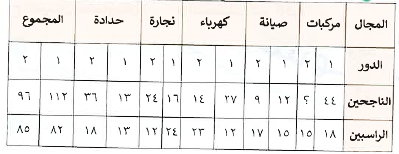 المجال مركبات صيانة كهرباء نجارة حدادة المجموع
الدور ١ ٢ ١ ٢ ١ ٢ ١ ٢ ١ ٢ ١ ٢
الناجحين ٤٤ ؟ ١٢ ٩ ٢٧ ١٤ ١٦ ٢٤ ١٣ ٣٦ ١١٢ ٩٦
الراسبين ١٨ ١٥ ١٥ ١٧ ١٢ ٢٣ ٢٤ ١٢ ١٣ ١٨ ٨٢ ٨٥